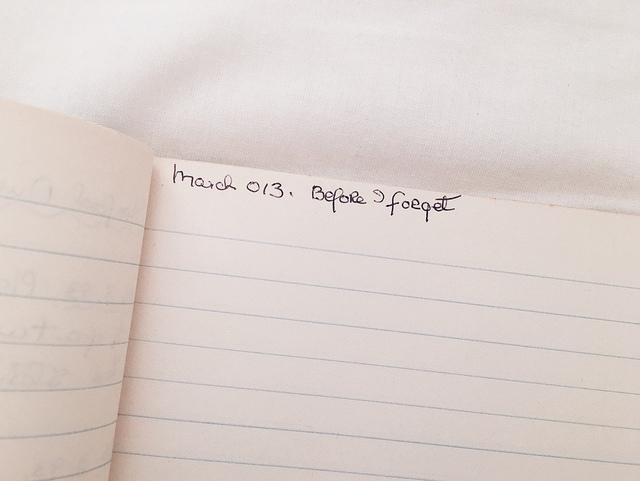 March 013. Before I forget